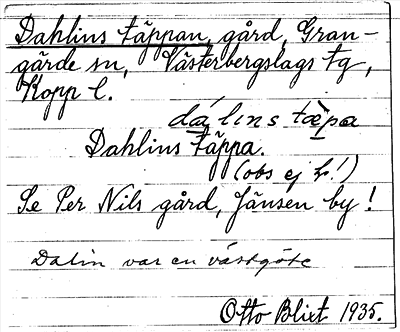 Dahlins täppan, gård, Gran-
gärde sn, Västerbergslags tg,
Kopp l.
dálins tæpa
Dahlins täppa.
(obs ej h!)
Se Per Nils gård, Jänsen by!
Dalin var en västgöte
Otto Blixt 1935.